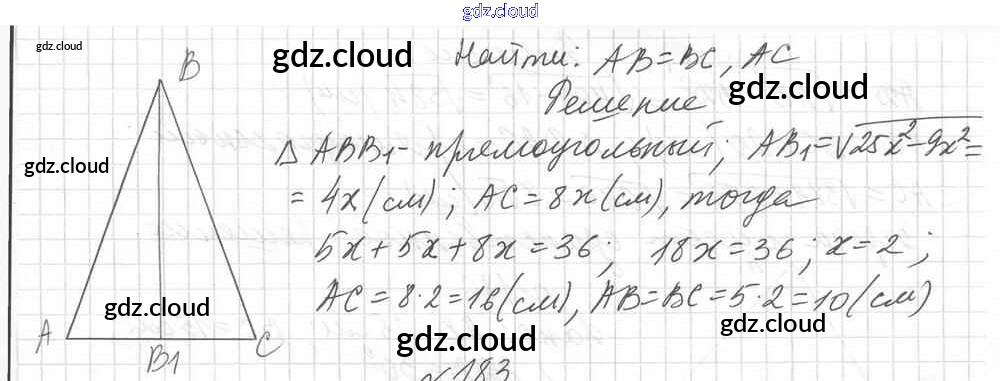 gdz.cloud
gdz.cloud
gdz.cloud
Найти: AB=BC, AC
gdz.cloud
Решение
B
gdz.cloud
△ ABB₁- прямоугольный; AB₁=√25x²-9x²=
= 4x(см); AC=8x(см), тогда
5x+5x+8x=36; 18x=36; x=2;
AC=8·2=16(см), AB=BC=5·2=10(см)
gdz.cloud
gdz.cloud
gdz.cloud
A
B1
C
183